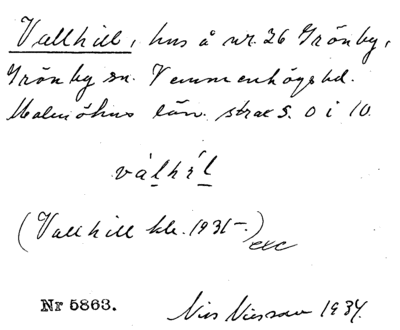 Vallhill, hus å nr. 26 Grönby,
Grönby sn. Vemmenhögs hd.
Malmöhus län. strax S. O i 10.
válhíl
(Vallhill kk. 1931-) exc
Nr 5863. Nils 1934.